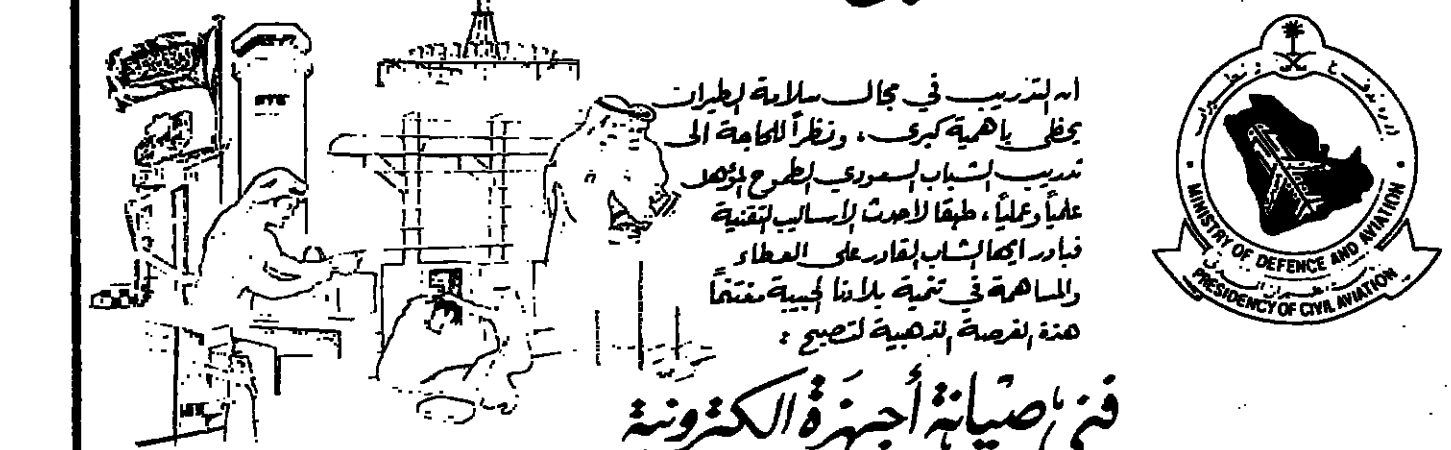 ان التدريب في مجال سلامة الطيران
يحظى باهمية كبرى ، ونظراً للحاجة الى
تدريب الشباب السعودي الطموح المؤهل
علمياً وعملياً ، طبقا لأحدث الأساليب التقنية
فبادر ايها الشاب القادر على العطاء
والمساهمة في تنمية بلادنا الحبيبة مغتنماً
هذة الفرصة الذهبية لتصبح :
فني صيانة أجهزة الكترونية
MINISTRY OF DEFENCE AND AVIATION
PRESIDENCY OF CIVIL AVIATION